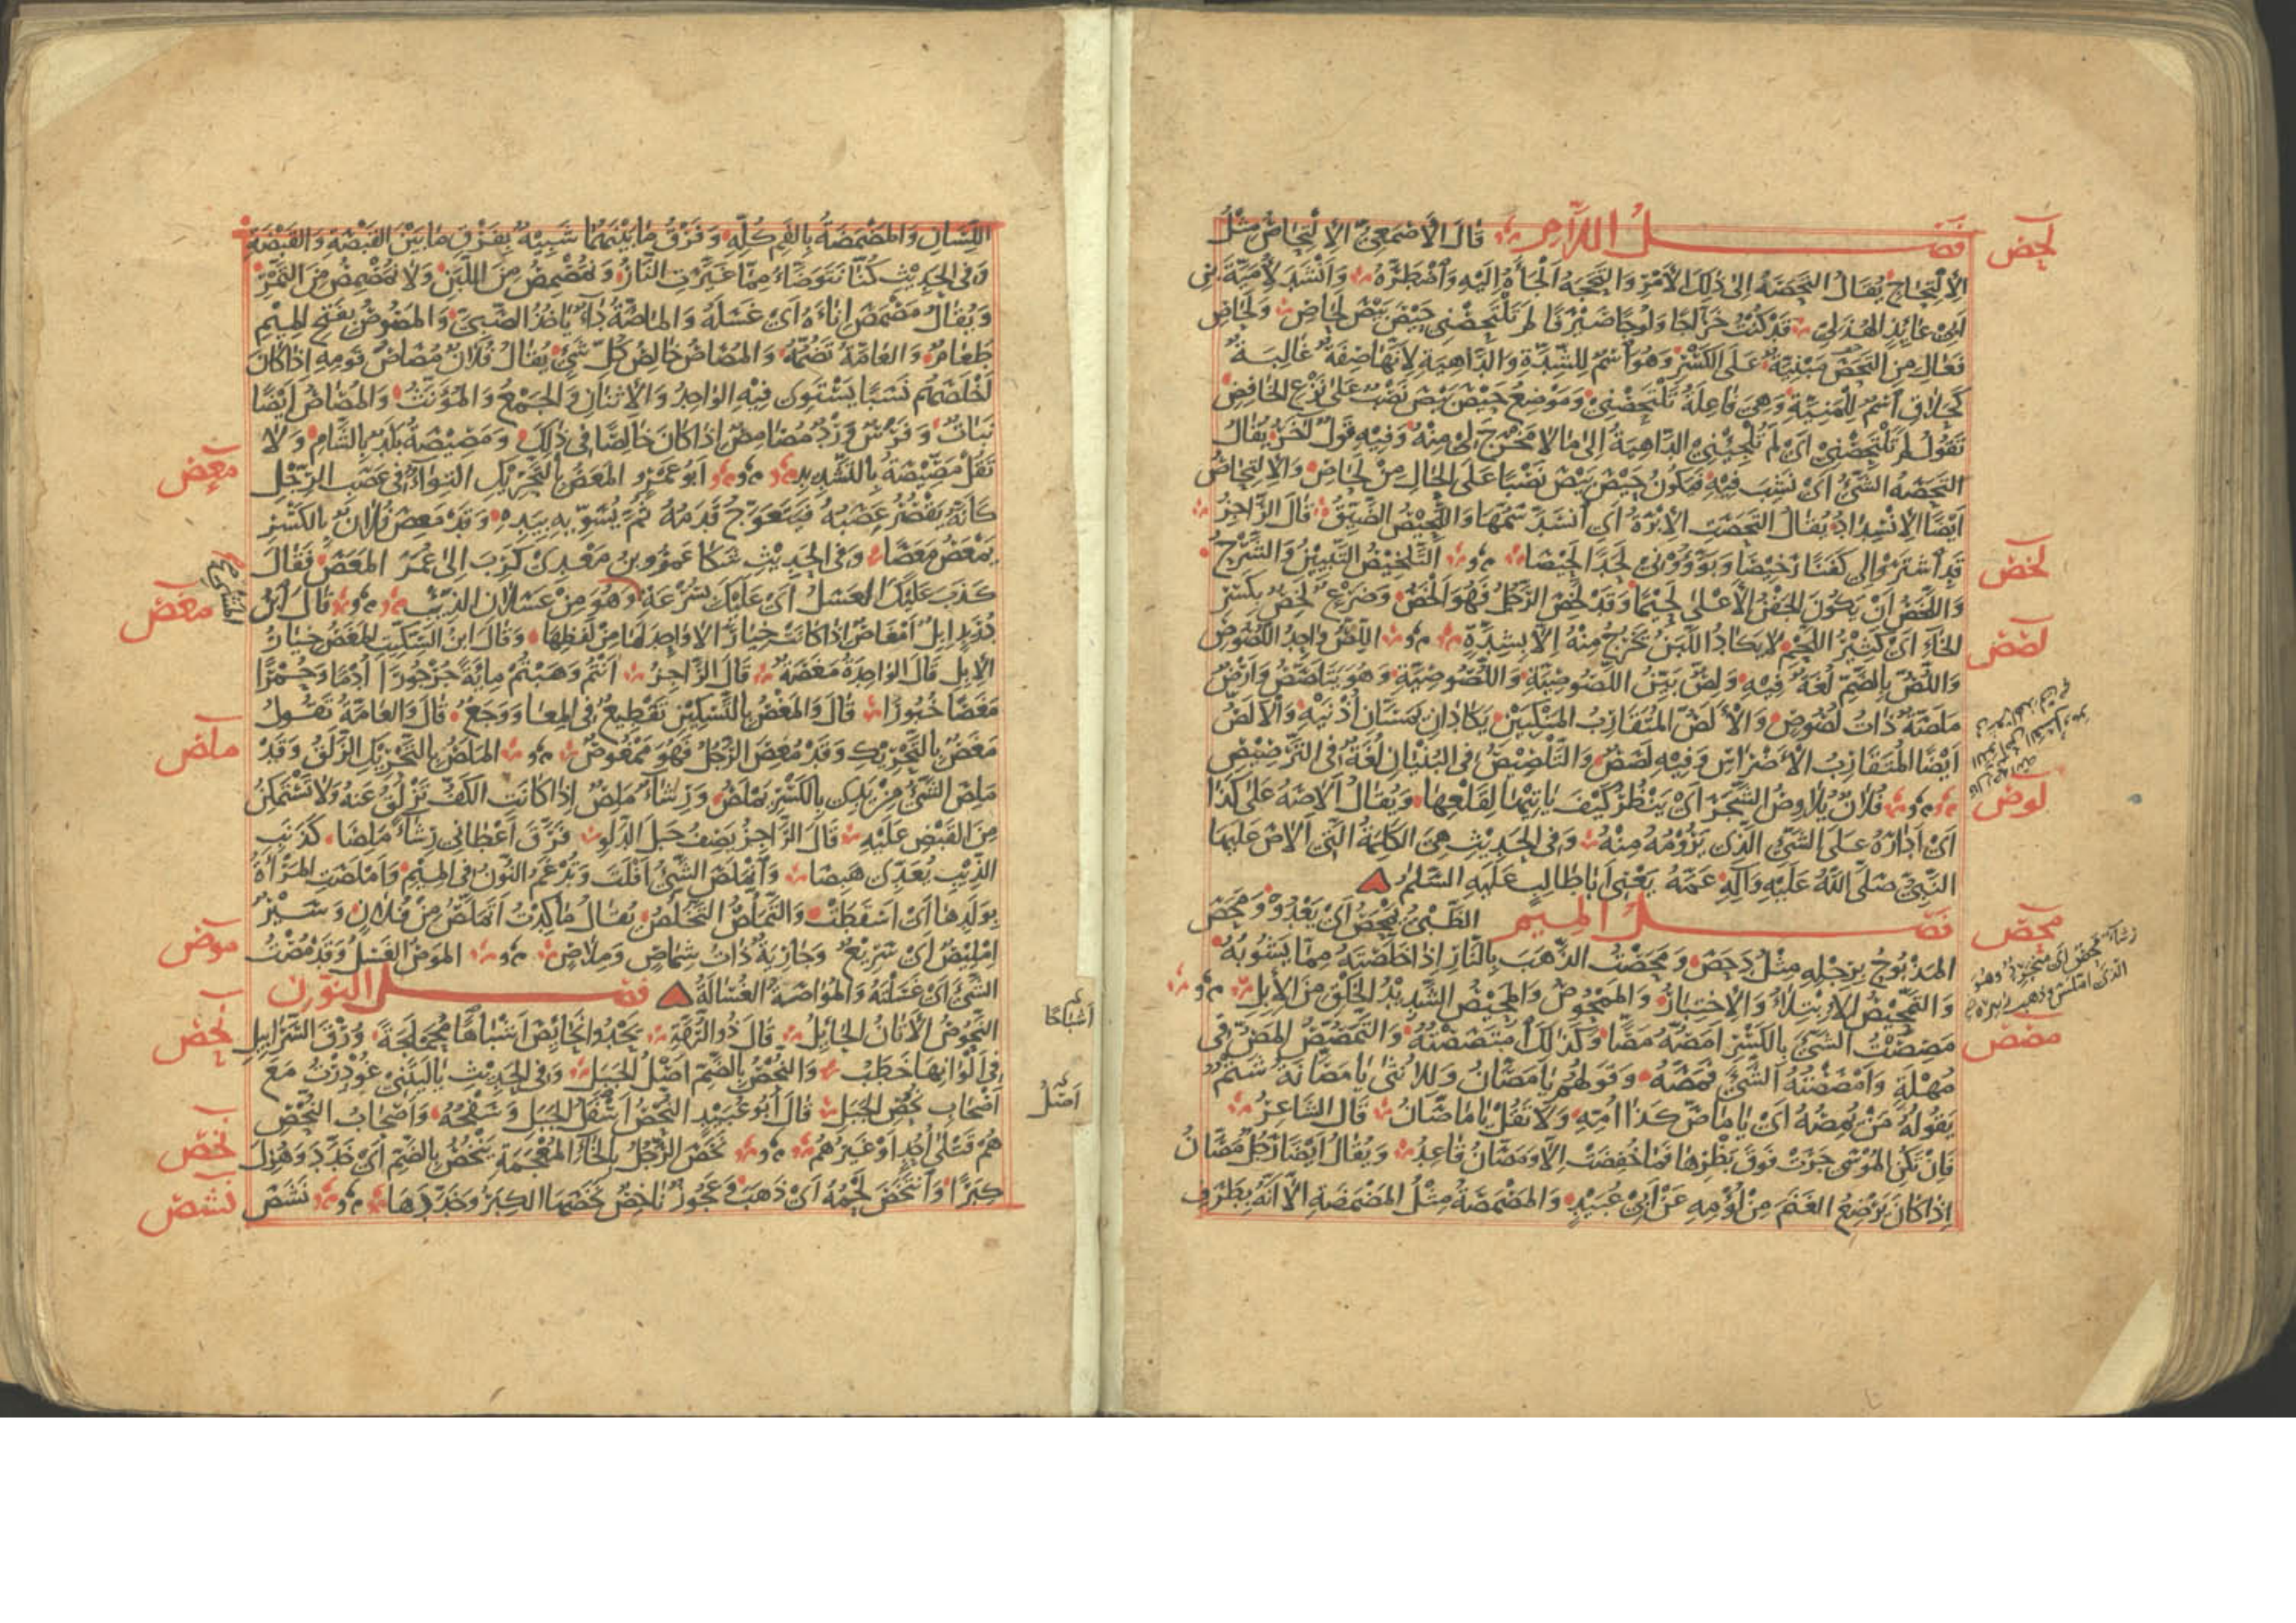 لحص
فصل اللام قال الأصمعي الالتحاص مثل
الالتحاج يقال التحصه إلى ذلك الأمر والتحجه ألجأه إليه واضطره وأنشد لأمية بن
أبي عائذ الهذلي قد كنت خراجا ولوجا صيرفا لم تلتحصني حيص بيص لحاص ولحاص
فعال من التحص مبنية على الكسر وهو اسم للشدة والداهية لأنها صفة غالبة
كحلاق اسم للمنية وهي فاعلة تلتحصني وموضع حيص بيص نصب على نزع الخافض
تقول لم تلتحصني أي لم تلجئني الداهية إلى ما لا مخرج لي منه وفيه قول آخر يقال
التحصه الشيء أي نشب فيه فيكون حيص بيص نصبا على الحال من لحاص والالتحاص
أيضا الانسداد يقال التحصت الإبرة أي انسد سمها واللحيص الضيق قال الراجز
لخص
قد اشتروا لي كفنا رخيصا وبوؤوني لحدا لحيصا التلخيص التبيين والشرح
واللخص أن يكون الجفن الأعلى لحيما وقد لخص الرجل فهو ألخص وضرع لخص بكسر
لصص
الخاء أي كثير اللحم لا يكاد اللبن يخرج منه إلا بشدة اللص واحد اللصوص
واللص بالضم لغة فيه ولص بين اللصوصية واللصوصية وهو يتلصص وأرض
ملصة ذات لصوص والألص المتقارب المنكبين يكادان يمسان أذنيه والألص
أيضا المتقارب الأضراس وفيه لصص والتلصيص في البنيان لغة في الترصيص
لوص
فلان يلاوص الشجر أي ينظر كيف يأتيها لقلعها ويقال ألاصه على كذا
أي أداره على الشيء الذي يرومه منه وفي الحديث هي الكلمة التي ألاص عليها
النبي صلى الله عليه وآله عمه يعني أبا طالب عليه السلم
محص
فصل الميم الظبي يمحص أي يعدو ومحص
المذبوح برجله مثل دحص ومحصت الذهب بالنار إذا خلصته مما يشوبه
والتمحيص الابتلاء والاختبار والممحوص والمحيص الشديد الخلق من الإبل
مصص
مصصت الشيء بالكسر أمصه مصا وكذلك امتصصته والتمصص المص في
مهلة وأمصصته الشيء فمصه وقولهم يا مصان وللأنثى يا مصانة شتم
يقوله من يمصه أي يا ماص كذا أمه ولا تقل يا ماصان قال الشاعر
فإن تكن الموسى جرت فوق بظرها فما خفضت إلا ومصان قاعد ويقال أيضا رجل مصان
إذا كان يرضع الغنم من لؤمه عن أبي عبيد والمصمصة مثل المضمضة إلا أنه بطرف
اللسان والمضمضة بالفم كله وفرق ما بينهما شبيه بفرق ما بين القبصة والقبضة
وفي الحديث كنا نتوضأ مما غيرت النار ونمصمص من اللبن ولا نمصمص من التمر
ويقال مصمص إناءه أي غسله والماصة داء يأخذ الصبي والمصوص بفتح الميم
طعام والعامة تضمه والمصاص خالص كل شيء يقال فلان مصاص قومه إذا كان
أخلصهم نسبا يستوي فيه الواحد والاثنان والجمع والمؤنث والمصاص أيضا
نبات وفرس ورد مصامص إذا كان خالصا في ذلك ومصيصة بلد بالشام ولا
معص
تقل مصيصة بالتشديد أبو عمرو المعص بالتحريك التواء في عصب الرجل
كأنه يقصر عصبه فيتعوج قدمه ثم يسويه بيده وقد معص فلان بالكسر
يمعص معصا وفي الحديث شكا عمرو بن معدي كرب إلى عمر المعص فقال
مغص
كذب عليك العسل أي عليك بسرعة وهو من عسلان الذئب قال ابن
دريد إبل أمغاص إذا كانت خيارا لا واحد لها من لفظها وقال ابن السكيت المغص خيار
الإبل قال الواحدة مغصة قال الراجز أنتم وهبتم مائة جرجورا أدما وحمرا
مغصا خبورا قال والمغص بالتسكين تقطيع في المعا ووجع قال والعامة تقول
ملص
مغص بالتحريك وقد مغص الرجل فهو ممغوص الملص بالتحريك الزلق وقد
ملص الشيء من يدي بالكسر يملص ورشاء ملص إذا كانت الكف تزلق عنه ولا تستمكن
من القبض عليه قال الراجز يصف حبل الدلو فر وأعطاني رشاء ملصا كذنب
الذئب يعدى هبصا وانملص الشيء أفلت وتدغم النون في الميم وأملصت المرأة
بولدها أي أسقطت والتملص التخلص يقال ما كدت أتملص من فلان وسير
موص
إمليص أي سريع وجارية ذات شماص وملاص الموص الغسل وقد مصت
الشيء أي غسلته والمواصة الغسالة فصل النون
نحص
النحوص الأتان الحائل قال ذو الرمة يحدو نحائص أشباها محملجة ورق السرابيل
أشباحا
في ألوانها خطب والنحص بالضم أصل الجبل وفي الحديث يا ليتني غودرت مع
أصل
أصحاب نحص الجبل قال أبو عبيد النحص أسفل الجبل وسفحه وأصحاب النحص
نخص
هم قتلى أحد أو غيرهم نخص الرجل بالخاء المعجمة ينخص بالضم أي خدد وهزل
نشص
كبرا وانتخص لحمه أي ذهب وعجوز ناخص نخصها الكبر وخددها نشص